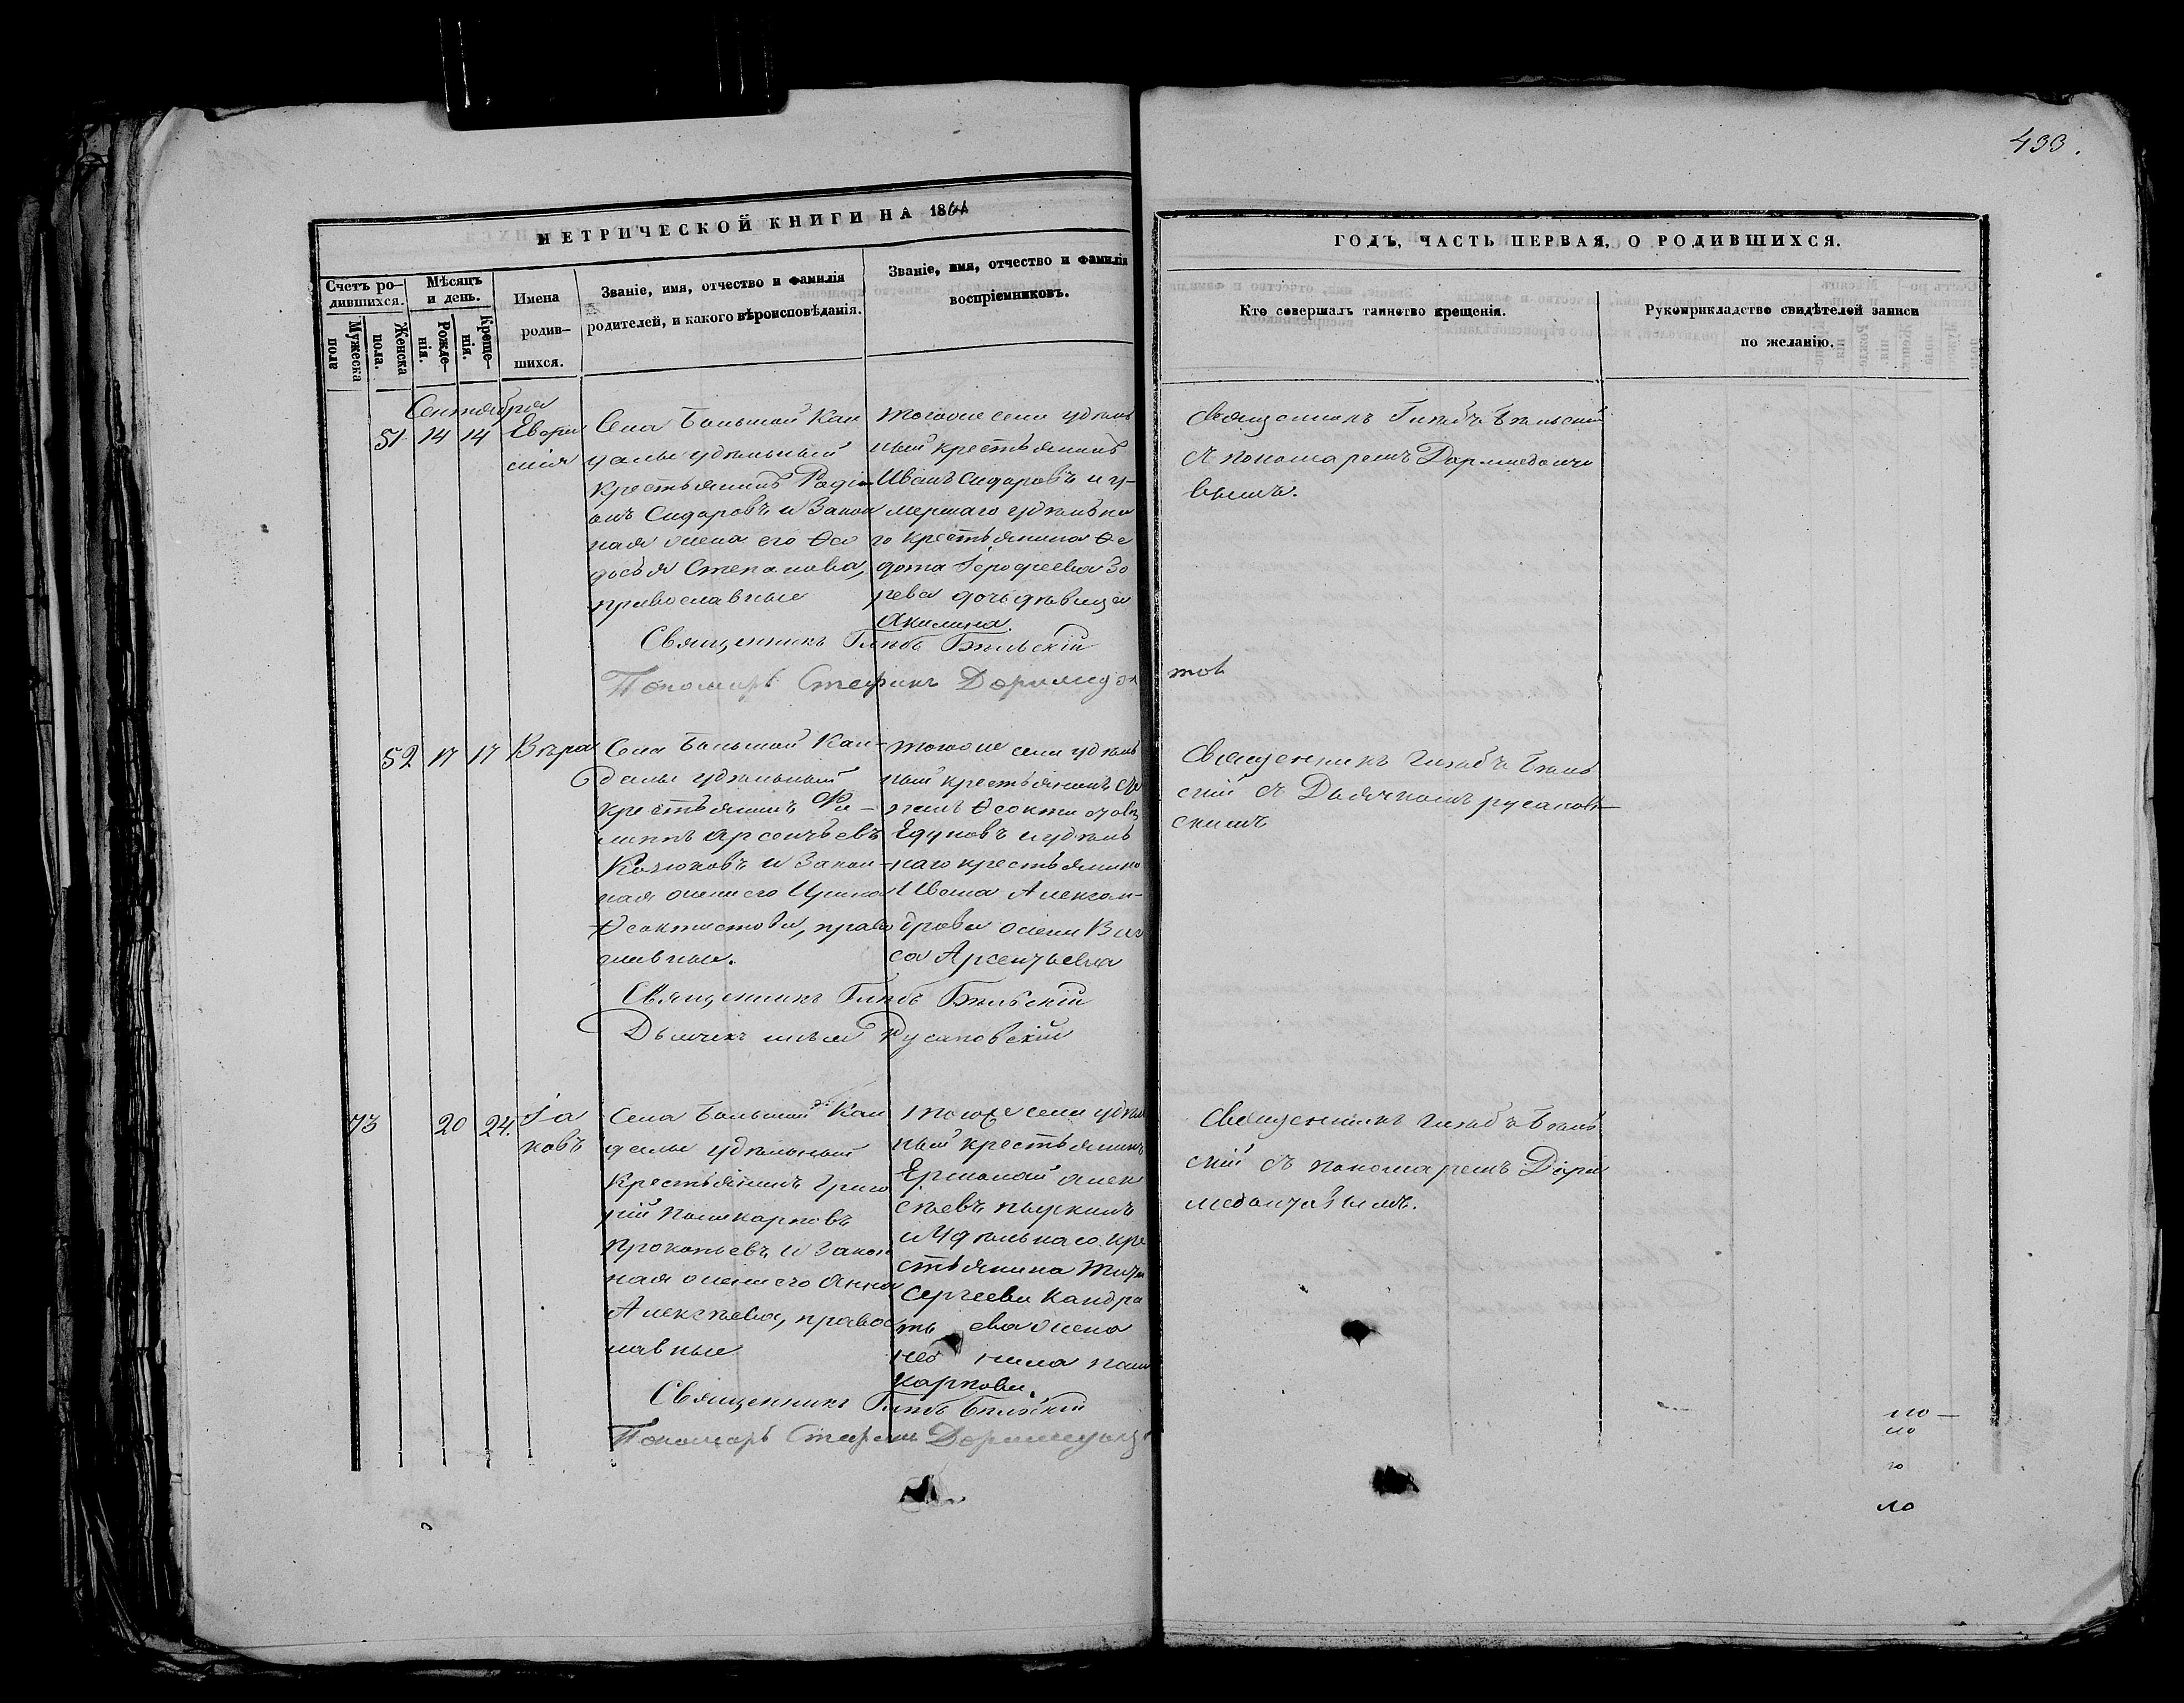 433.
МЕТРИЧЕСКОЙ КНИГИ НА 1864
ГОДЪ, ЧАСТЬ ПЕРВАЯ, О РОДИВШИХСЯ.
Счетъ ро-
дившихся.
Мужеска
пола
Женска
пола.
Мѣсяцъ
и день.
Рожде-
нія.
Креще-
нія.
Имена
родив-
шихся.
Званіе, имя, отчество и фамилія
родителей, и какого вѣроисповѣданія.
Званіе, имя, отчество и фамилія
воспріемниковъ.
Кто совершалъ таинство крещенія.
Рукоприкладство свидѣтелей записи
по желанію.
Сентября
51 14 14
Села Большой Кан
далы удѣльный
крестьянинъ Радiо
онъ Сидаровъ и Закон
ная жена его Ѳео
досья Степанова,
православные
Тогоже села удѣль
ный крестьянинъ
Иванъ Сидаровъ и у-
мершаго удѣльна
го крестьянина Ѳе
дота Ерофеева Зо
рева дочь дѣвица
Акилина.
Священникъ Глѣбъ Бѣльскій
съ пономаремъ Дармидонто
вымъ.
Священникъ Глѣбъ Бѣльскій
Пономарь Стефанъ Дормидон
товъ
52 17 17 Вѣра
Села Большой Кан-
далы удѣльный
крестьянинъ Фи-
липпъ Арсентьевъ
и Закон-
ная жена его Ирина
Ѳеоктистова, право
славные.
Тогоже села удѣль
ный крестьянинъ
Ѳеоктистовъ
и удѣль
наго крестьянина
Ивана Алексан-
дрова жена Ва
са Арсентьева
Священникъ Глѣбъ Бѣль
скій съ Дьячкомъ русанов-
скимъ
Священникъ Глѣбъ Бѣльскій
Дьячекъ Русановскій
73 20 24. Iа
ковъ
Села Большой Кан
далы удѣльный
Крестьянинъ Григо
рій Поликарповъ
Прокопьевъ и Закон
ная жена его Анна
Алексѣева, правос
лавные
Тогоже села удѣль
ный крестьянинъ
Ермолай Алек
сѣевъ
и Удѣльнаго кре
стьянина Тита
Сергеева Кандра
тьева жена
нила поли
карпова.
Священникъ Глѣбъ Бѣль
скій съ пономаремъ Дор
медонтовымъ.
Священникъ Глѣбъ Бѣльскій
Пономарь Стефанъ Дормидонтов